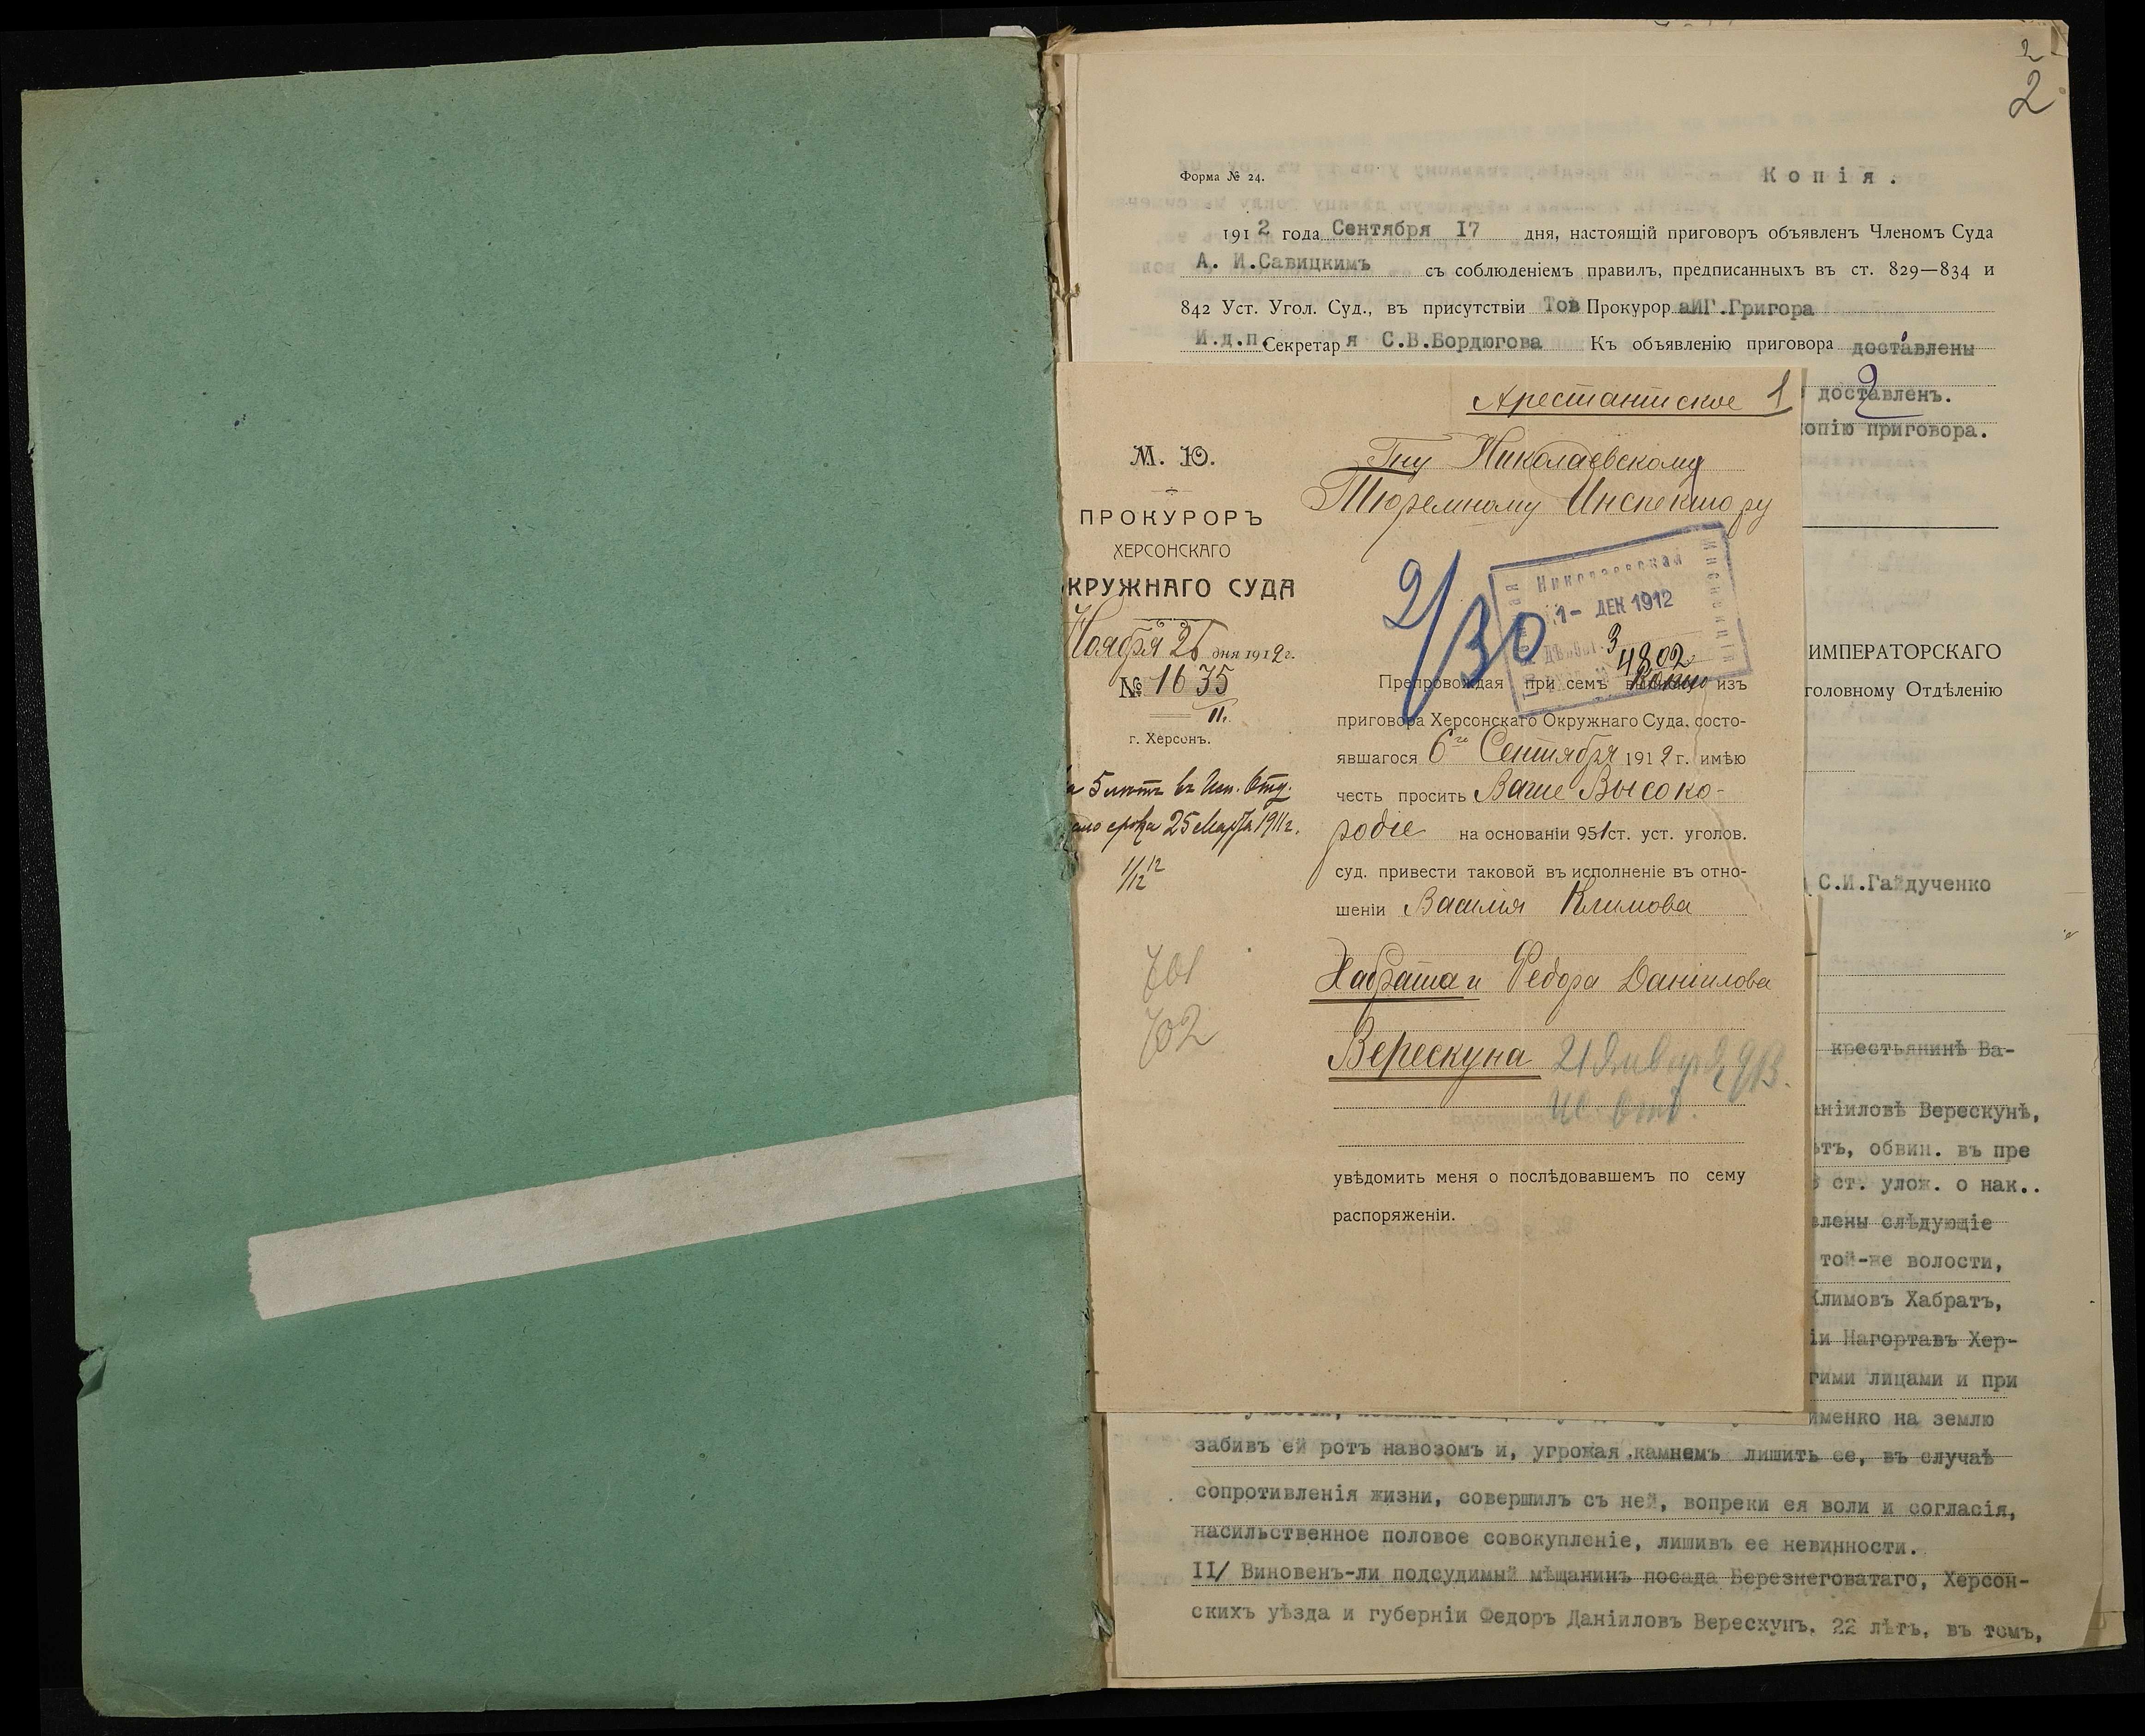 2
2
Форма № 24.
Копія.
1912 года Сентября 17 дня, настоящій приговоръ объявленъ Членомъ Суда
А. И.Савицкимъ съ соблюденіемъ правилъ, предписанныхъ въ ст. 829—834 и
842 Уст. Угол. Суд., въ присутствіи Тов Прокурор аИГ.Григора
И.д.п.Секретаря С.В.Бордюгова Къ объявленію приговора доставлены
доставленъ.
опію приговора.
ИМПЕРАТОРСКАГО
головному Отдѣленію
С.И.Гайдученко
крестьянинѣ Ва-
аніиловѣ Верескунѣ,
ѣтъ, обвин. въ пре
ст. улож. о нак..
влены слѣдующіе
той-же волости,
Климовъ Хабратъ,
іи Нагортавъ Хер-
гими лицами и при
именко на землю
забивъ ей ротъ навозомъ и, угрожая камнемъ лишить ее, въ случаѣ
сопротивленія жизни, совершилъ съ ней, вопреки ея воли и согласія,
насильственное половое совокупленіе, лишивъ ее невинности.
II/ Виновенъ-ли подсудимый мѣщанинъ посада Березнеговатаго, Херсон-
скихъ уѣзда и губерніи Федоръ Даніиловъ Верескунъ. 22 лѣтъ, въ томъ,
Арестантское 1
М. Ю.
ПРОКУРОРЪ
ХЕРСОНСКАГО
КРУЖНАГО СУДА
Ноября 26 дня 1912 г.
№ 1635
II.
г. Херсонъ.
5 лѣтъ въ Исп. Отд.
срока 25 Марта 1911 г.
1/12 12
701
702
Гну Николаевскому
Тюремному Инспектору
2/30
Николаевская
Инспекція
1- ДЕК 1912
3
4802
Препровождая при семъ копію изъ
приговора Херсонскаго Окружнаго Суда, состо-
явшагося 6го Сентября 1912 г. имѣю
честь просить Ваше Высоко-
родіе на основаніи 951 ст. уст. уголов.
суд. привести таковой въ исполненіе въ отно-
шеніи Василія Климова
Хабрата и Федора Даніилова
Верескуна 21 Января 1913.
увѣдомить меня о послѣдовавшемъ по сему
распоряженіи.